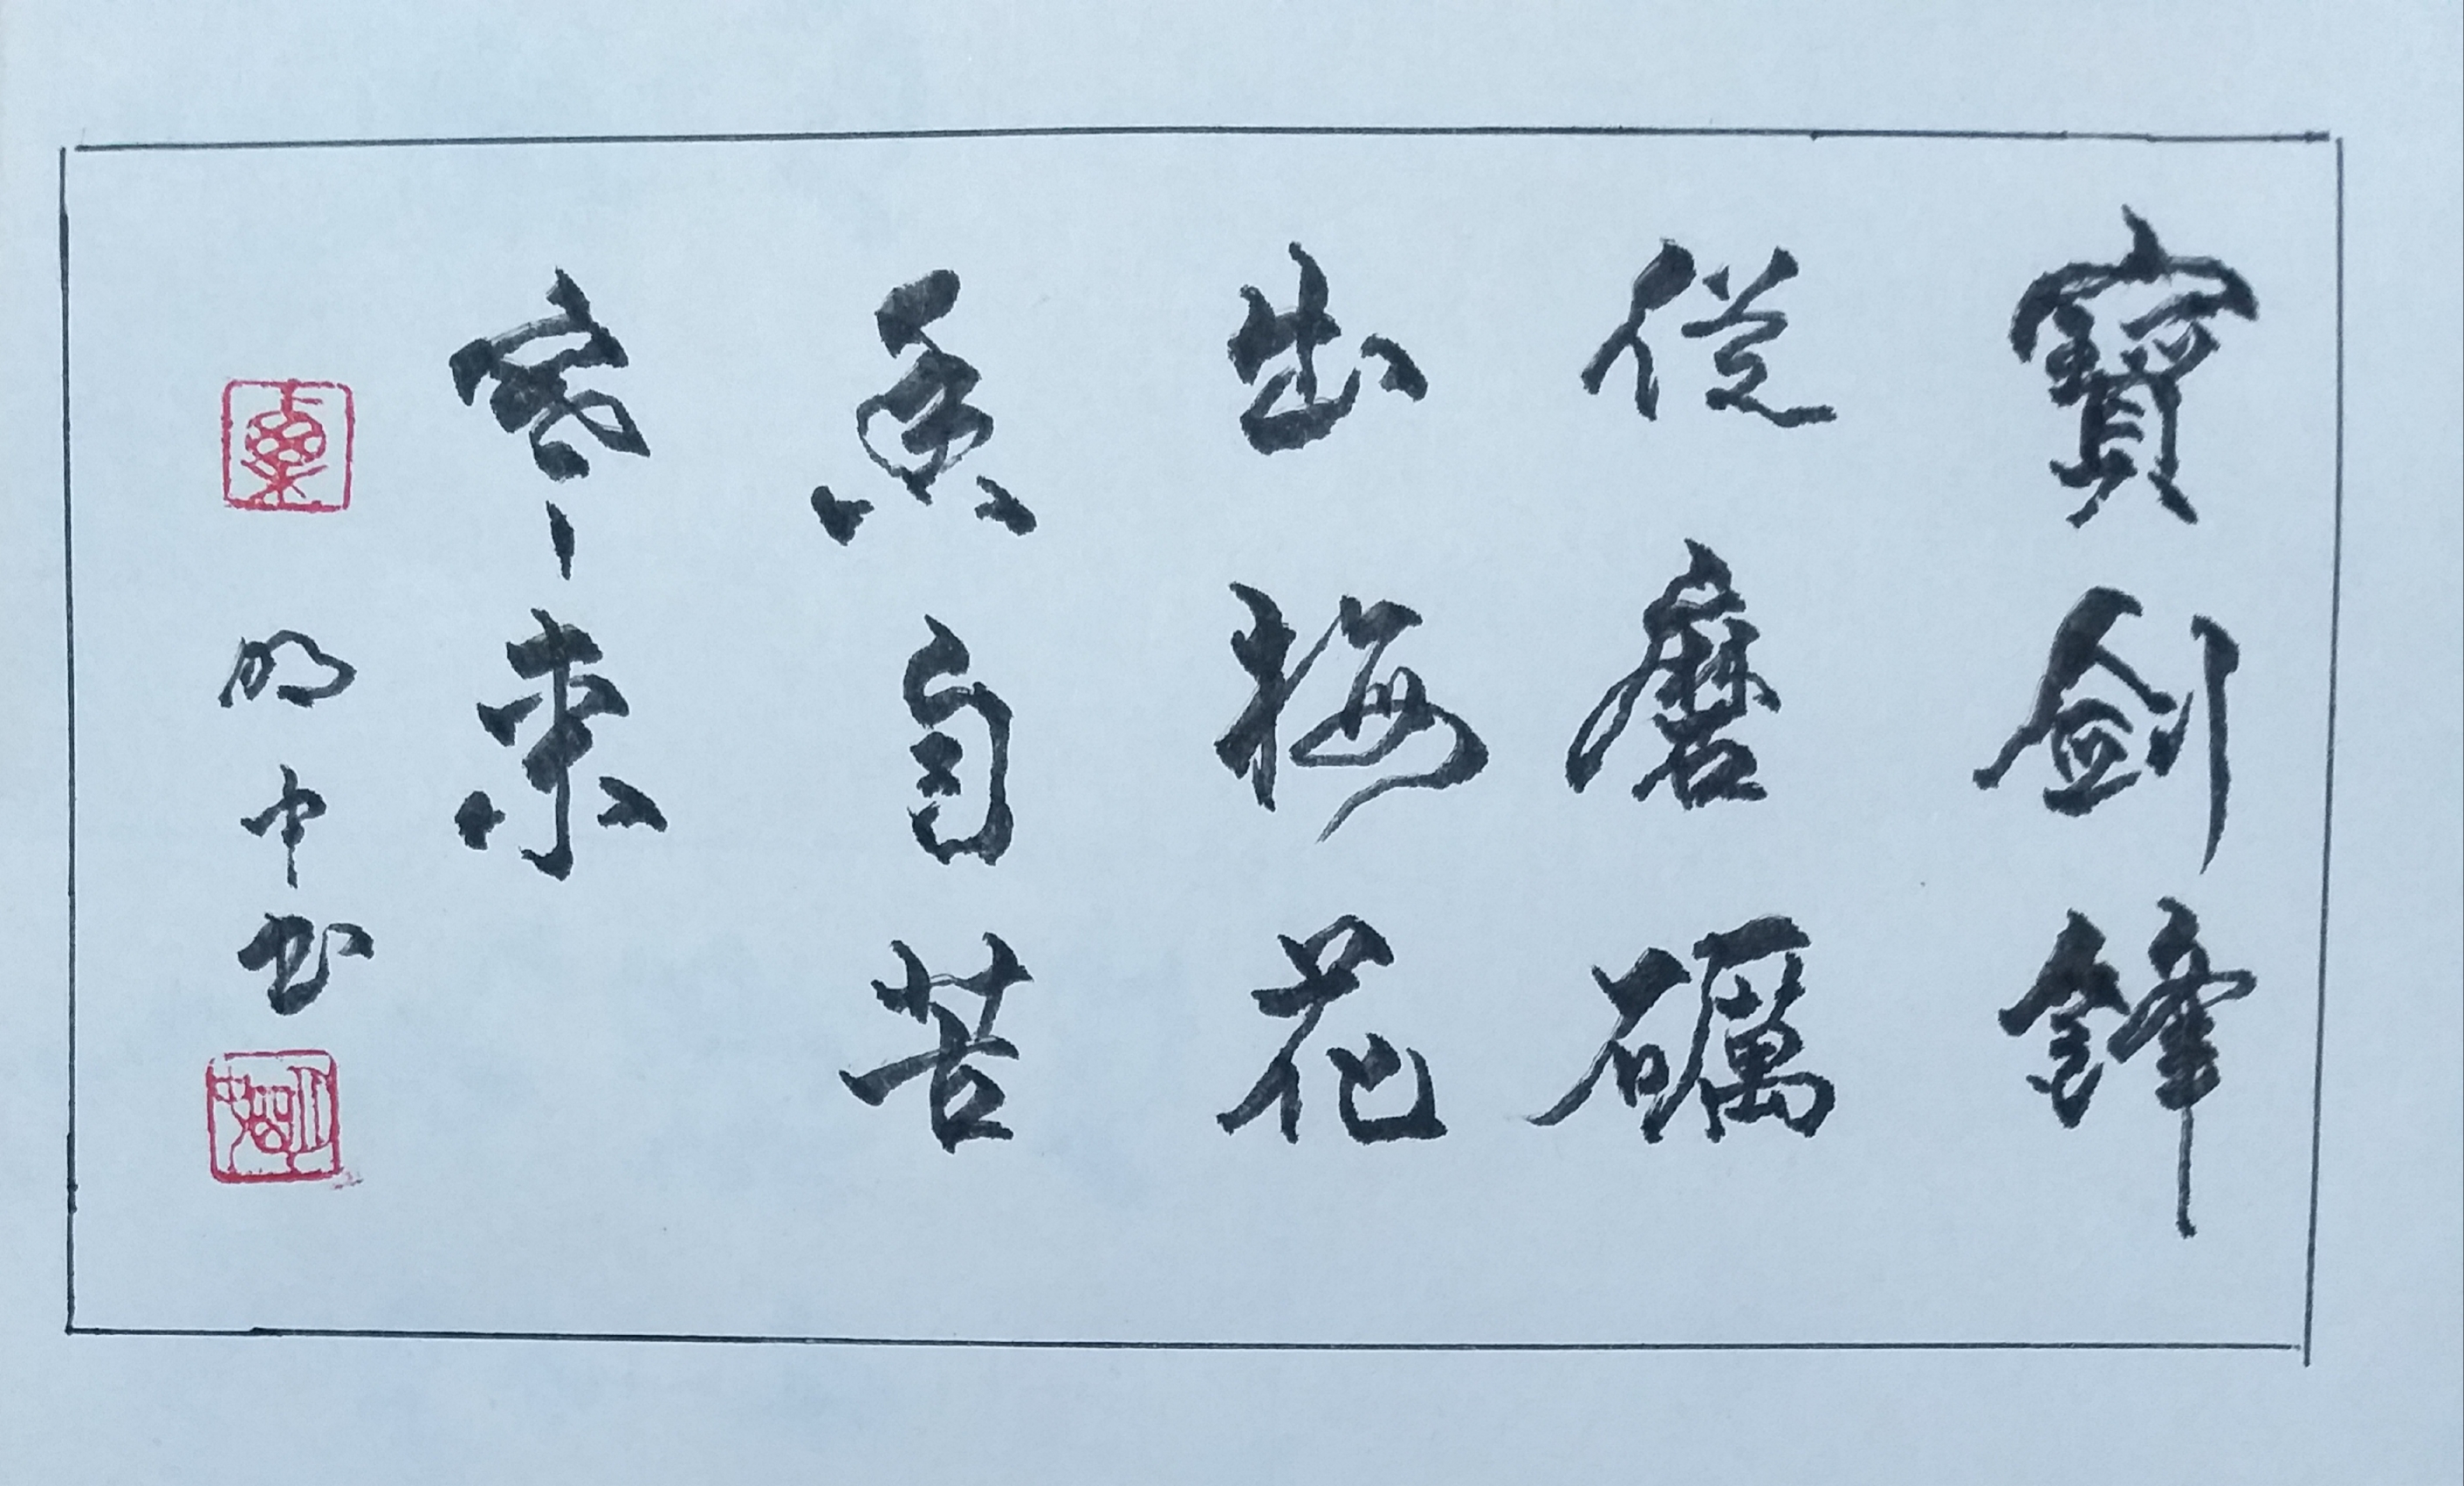 寶劍鋒
從磨礪
出梅花
香自苦
寒來
明中書